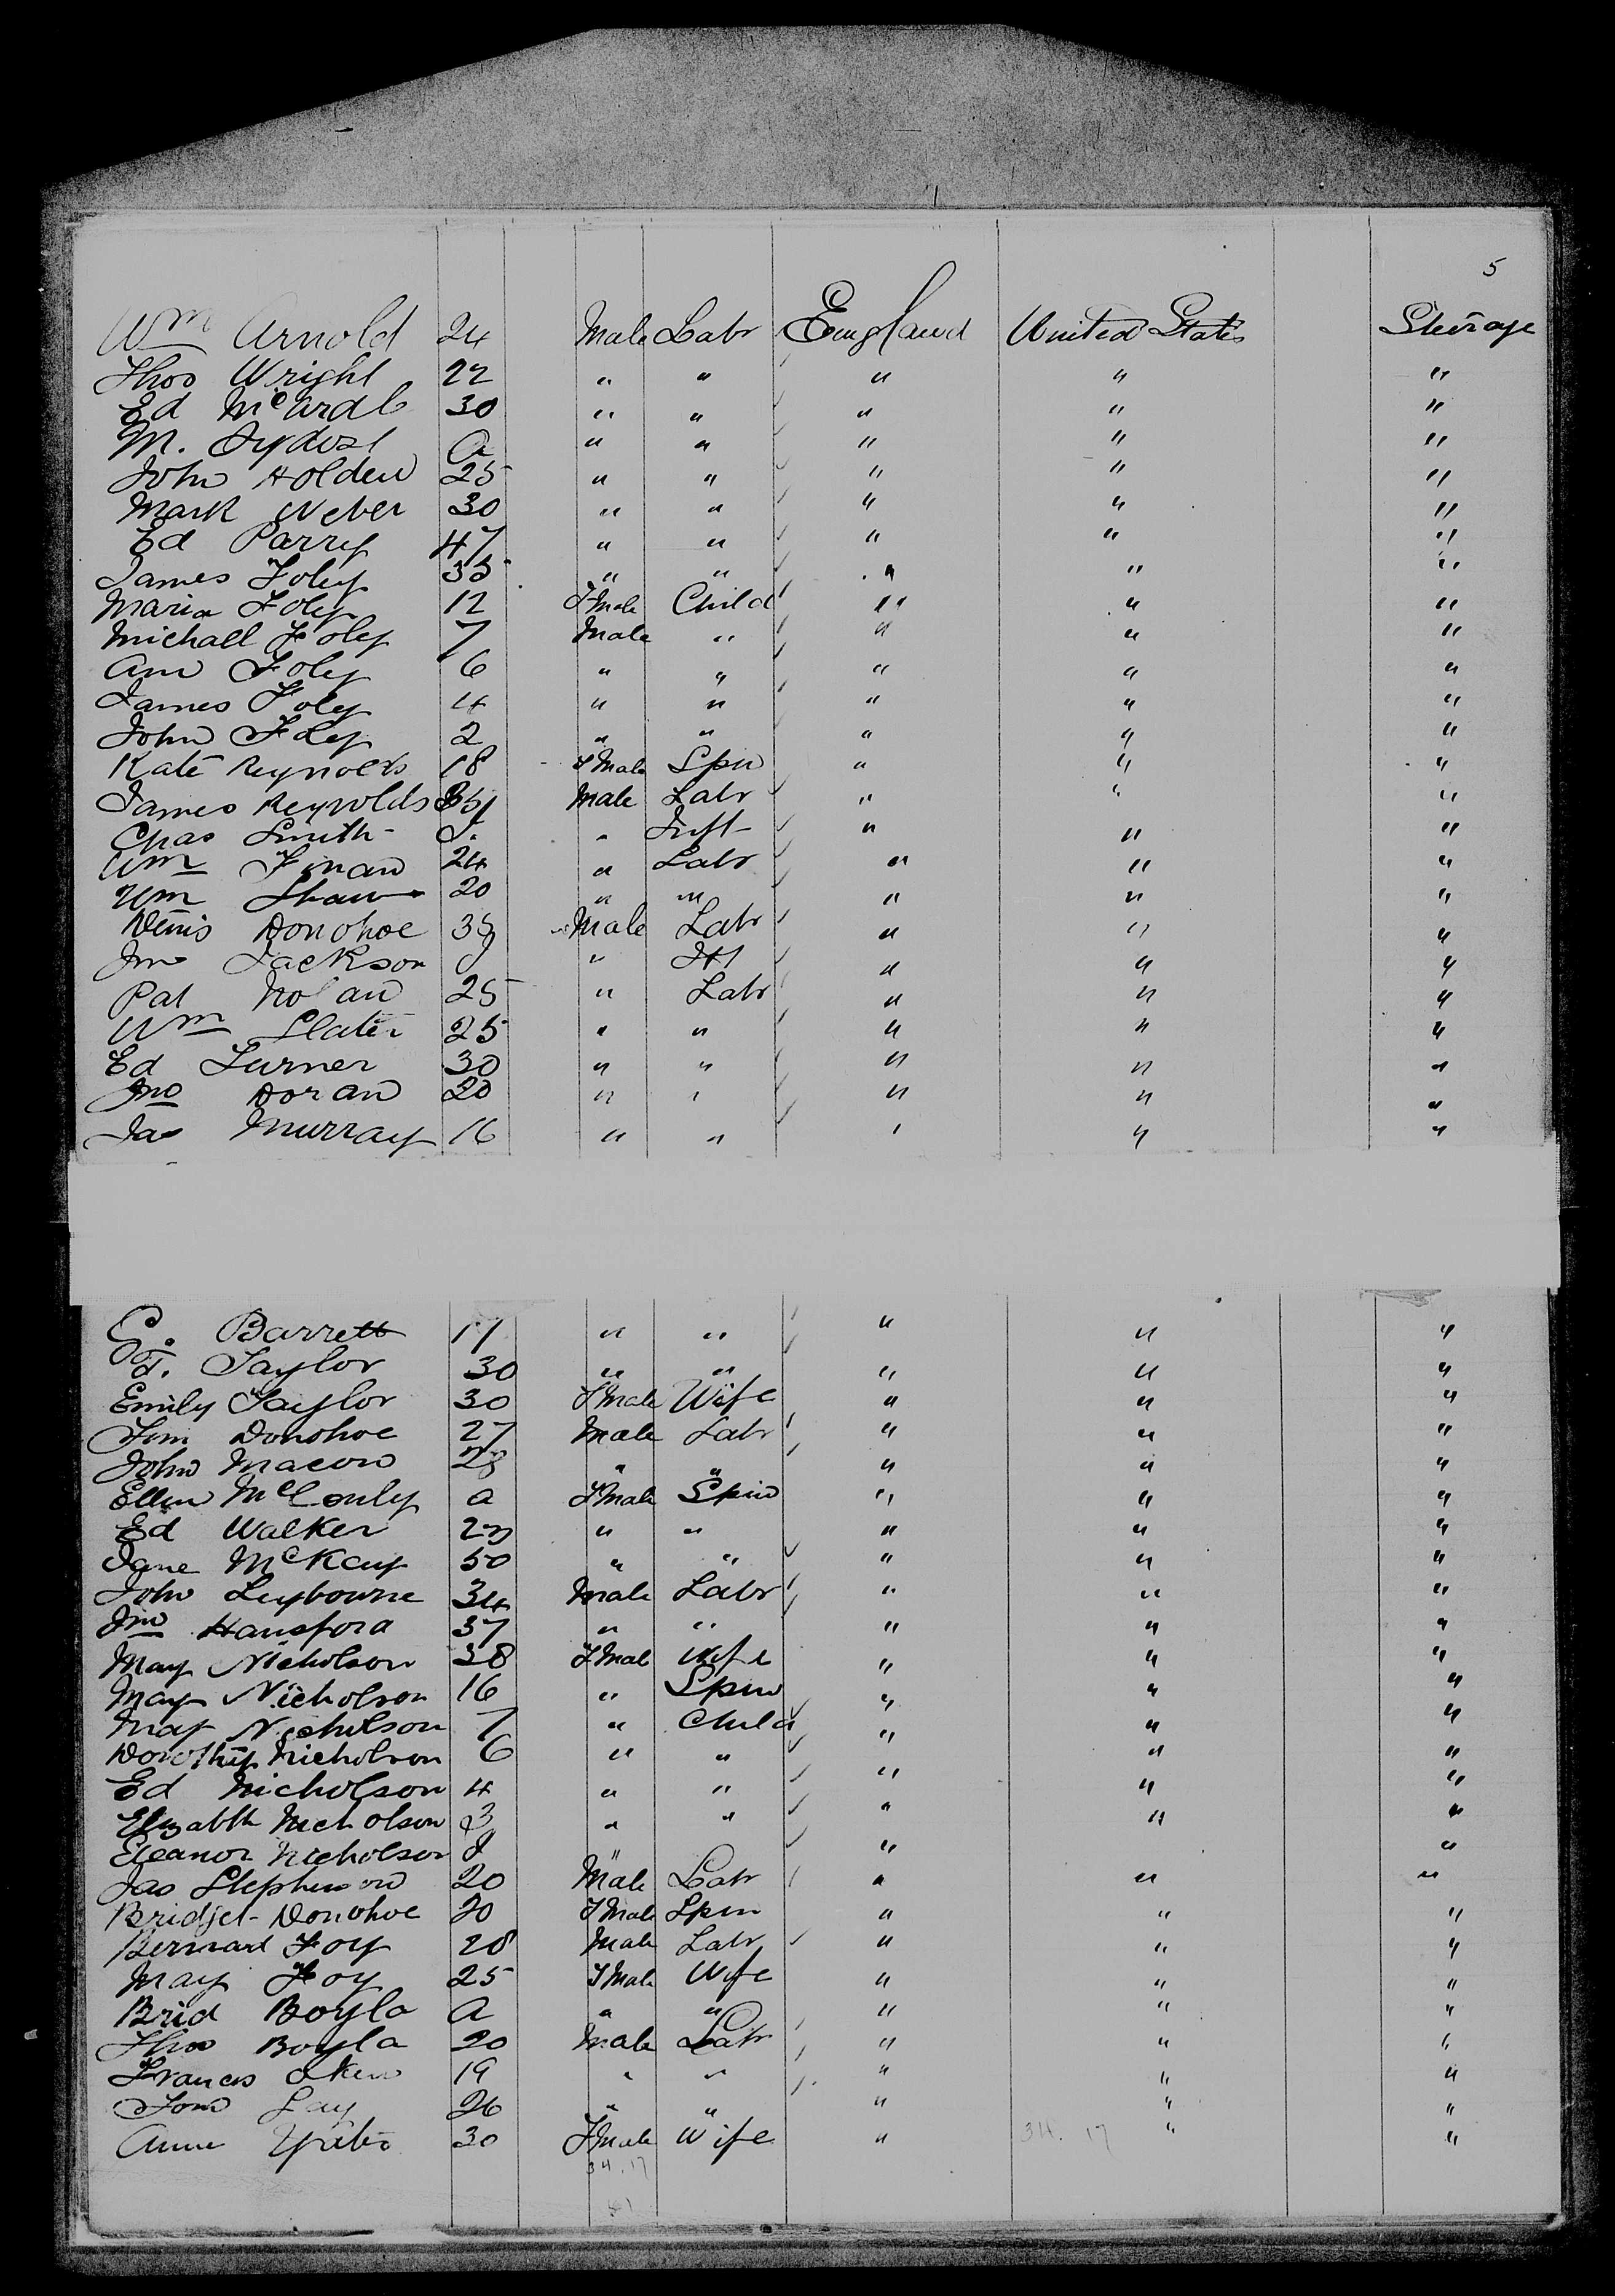 5
Wm Arnold 24 Male Labr England United States Steerage
Thos Wright 22 " " " " "
Ed McArdle 30 " " " " "
M. a " " " " "
John Holden 25 " " " " "
Mark Weber 30 " " " " "
Ed Parry 47 " " " " "
James Foley 35 " " " " "
Maria Foley 12 FMale Child " " "
Michall Foley 7 Male " " " "
Ann Foley 6 " " " " "
James Foley 4 " " " " "
John Foley 2 " " " " "
Kate Reynolds 18 FMale Spin " " "
James Reynolds Male Labr " " "
Chas Smith " Inft " " "
Wm Finan 24 " Labr " " "
Wm Shaw 20 " " " " "
Denis Donohoe 35 Male Labr " " "
Jno Jackson " " " "
Pat Nolan 25 " Labr " " "
Wm Slater 25 " " " " "
Ed Turner 30 " " " " "
Jno Doran 20 " " " " "
Jas Murray 16 " " " " "
C. Barrett 17 " " " " "
T. Taylor 30 " " " " "
Emily Taylor 30 FMale Wife " " "
Tom Donohoe 27 Male Labr " " "
John Macow 28 " " " " "
Ellen McConly a FMale Spin " " "
Ed Walker 23 " " " " "
Jane McKay 50 " " " " "
John Leybourne 34 Male Labr " " "
Jno Hansford 37 " " " " "
May Nicholson 38 FMal Wife " " "
May Nicholson 16 " Spin " " "
May Nicholson 7 " Child " " "
Dorothy Nicholson 6 " " " " "
Ed Nicholson 4 " " " " "
Elizabth Nicholson 3 " " " " "
Eleanor Nicholson " " "
Jas Stephenson 20 Male Labr " " "
Bridjet Donohoe 20 FMale Spin " " "
Bernard Foy 28 Male Labr " " "
May Foy 25 FMale Wife " " "
Brid Boyla a " " " " "
Thos Boyla 20 Male Labr " " "
Francis 19 " " " " "
Tom Lay 26 " " " " "
Anne Yates 30 FMale Wife " 34. 17 " "
34. 17